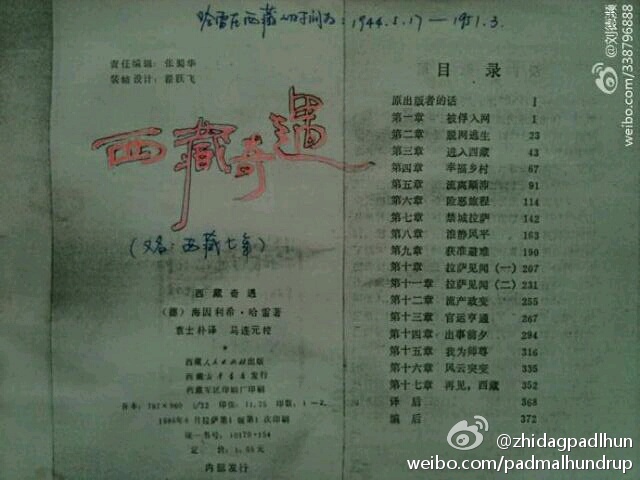 哈雷在西藏的时间为：1944.5.17—1951.3.
责任编辑：张蜀华
装帧设计：翟跃飞
西藏奇遇
（又名：西藏七年）
西藏奇遇
（德）海因利希·哈雷著
袁士朴译 马连元校
西藏人民出版社出版
西藏新华书店发行
西藏军区印刷厂印刷
开本：787×960 1/32 印张：11.75 印数：1—2,
1986年6月拉萨第1版第1次印刷
统一书号：10170·154
定价：1.55元
内部发行
目录
原出版者的话 I
第一章 被俘入网 1
第二章 脱网逃生 23
第三章 进入西藏 43
第四章 幸福乡村 67
第五章 流离颠沛 91
第六章 险恶旅程 114
第七章 禁城拉萨 142
第八章 浪静风平 163
第九章 获准避难 190
第十章 拉萨见闻（一） 207
第十一章 拉萨见闻（二） 231
第十二章 流产政变 255
第十三章 官运亨通 267
第十四章 出事前夕 294
第十五章 我为师尊 316
第十六章 风云突变 335
第十七章 再见，西藏 352
译后 368
编后 372
@刘德赟
weibo.com/338796888
@zhidagpadlhun
weibo.com/padmalhundrup